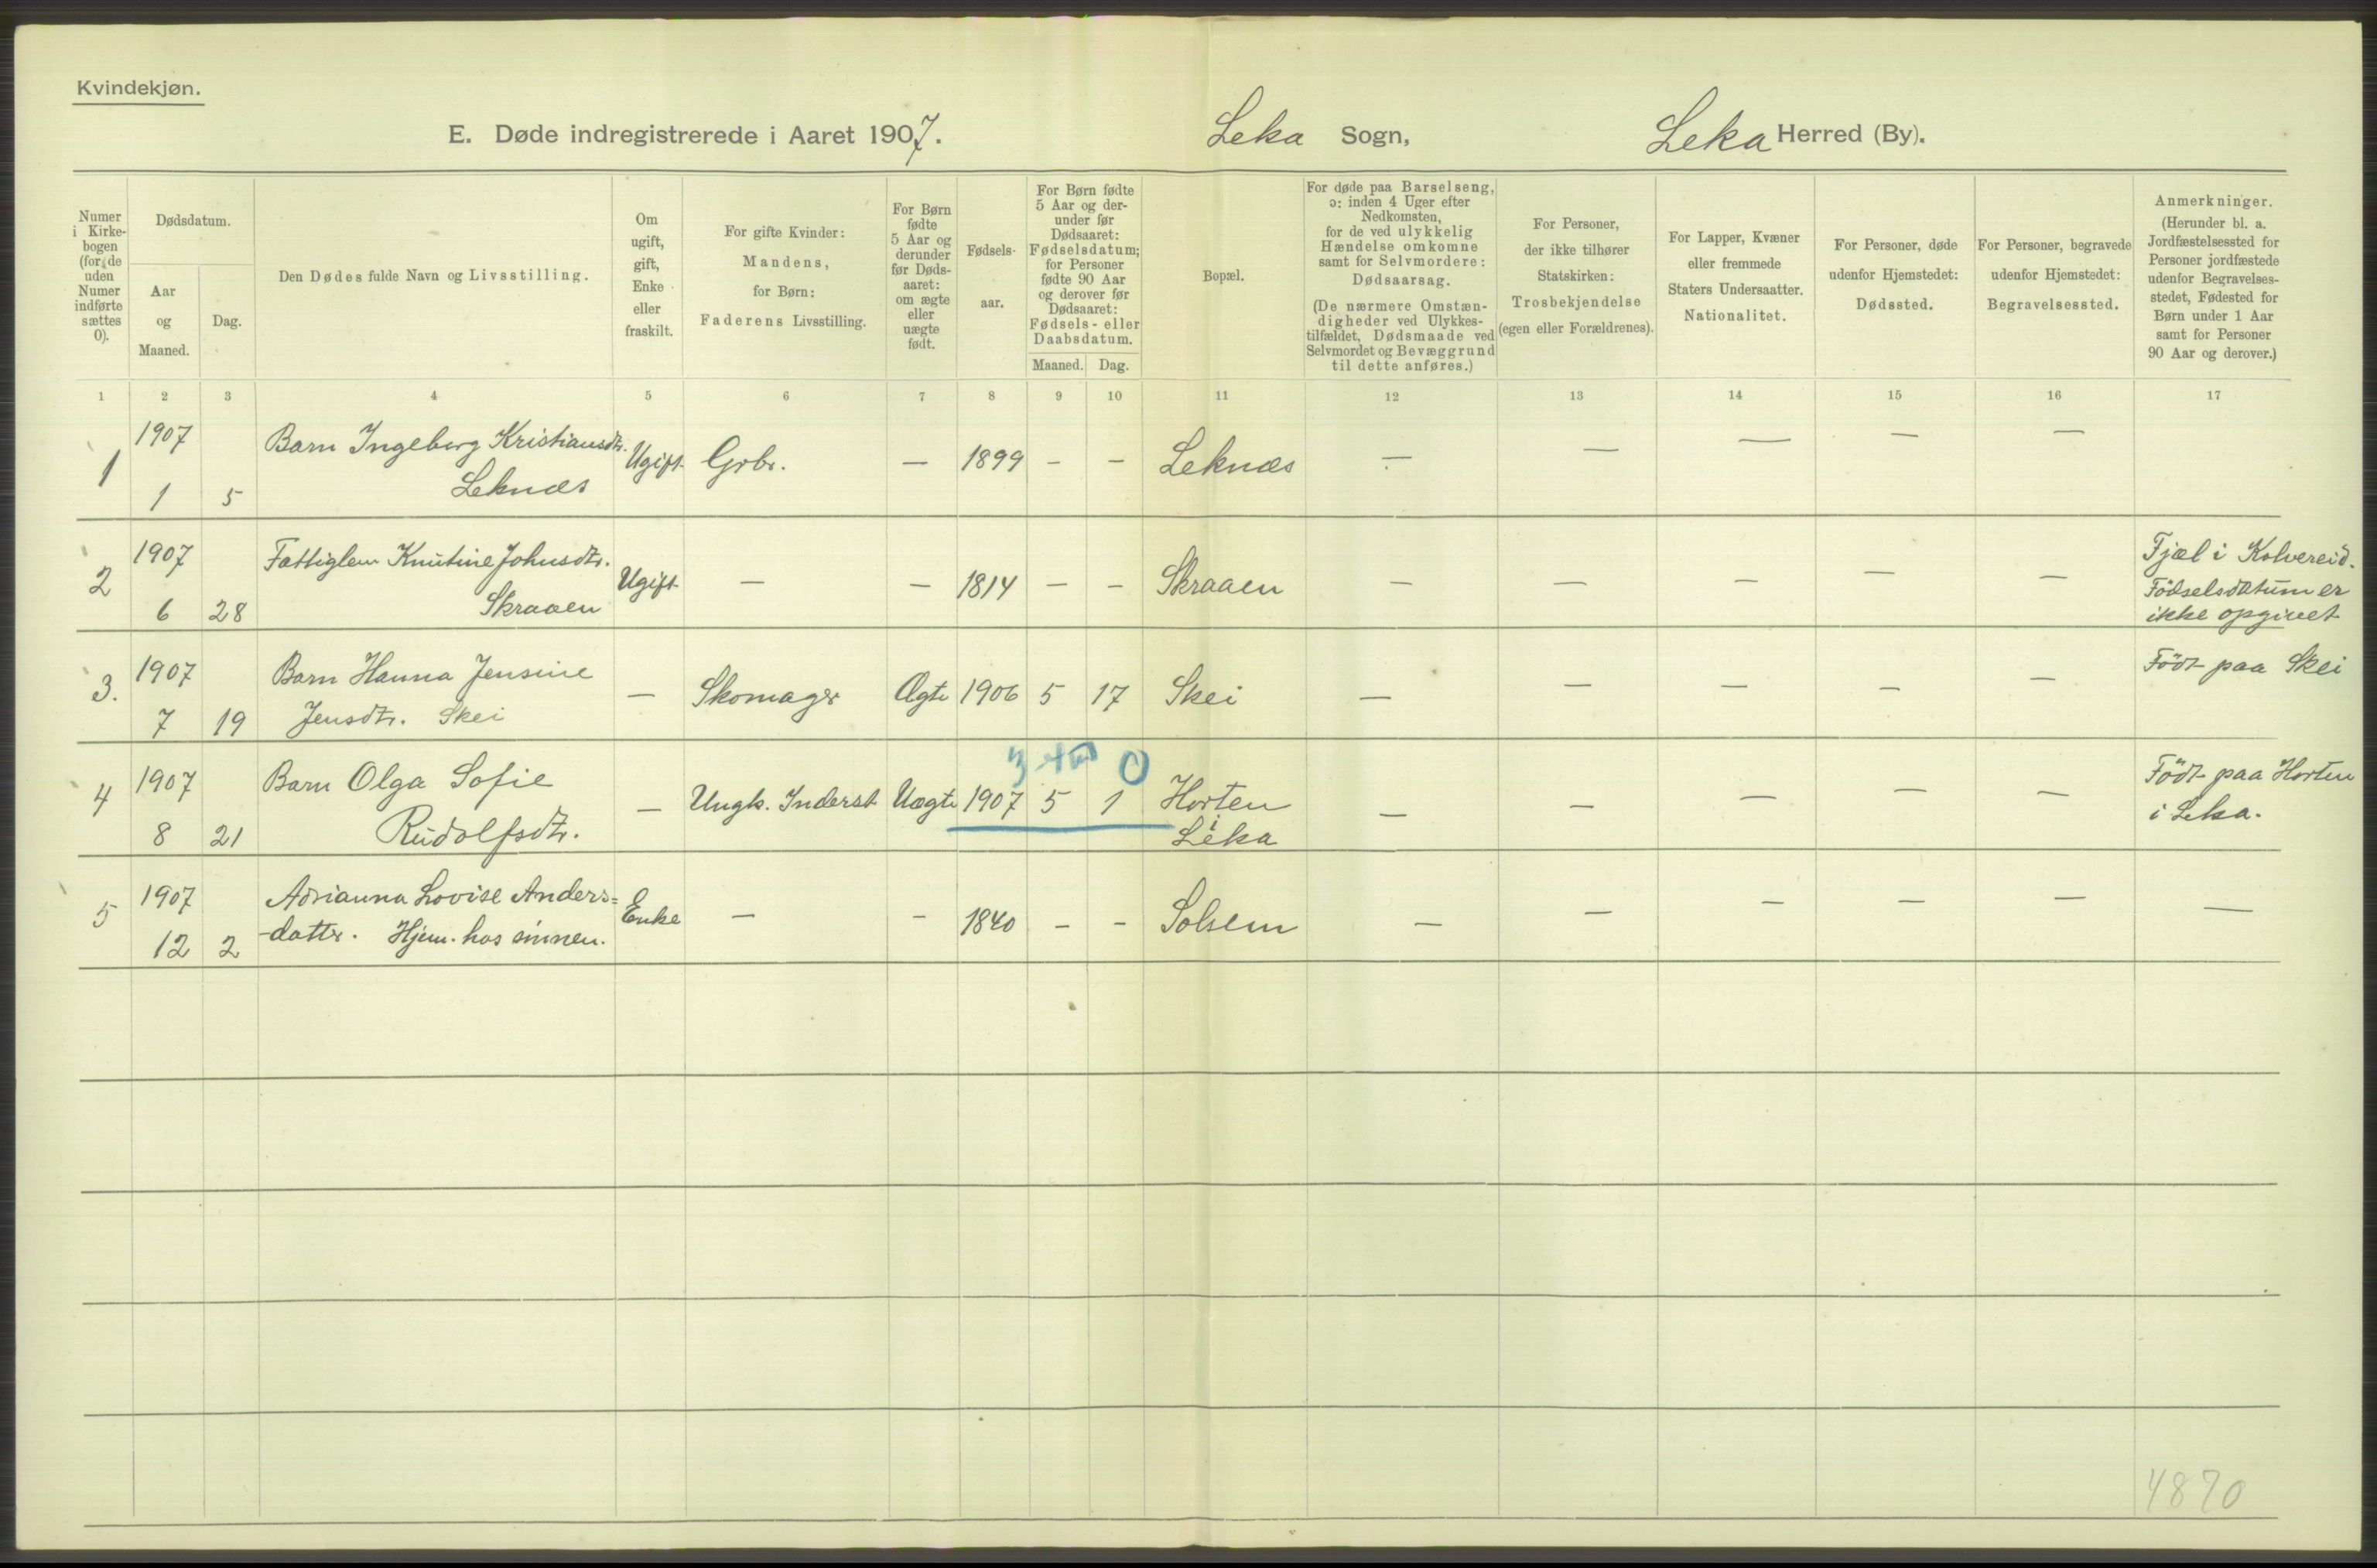 Kvindekjøn.
E. Døde indregistrerede i Aaret 1907. Leka Sogn, Leka Herred (By).
Numer
i Kirke-
bogen
(for de
uden
Numer
indførte
sættes
0).
Dødsdatum.
Aar
og
Maaned.
Dag.
Den Dødes fulde Navn og Livsstilling.
Om
ugift,
gift,
Enke
eller
fraskilt.
For gifte Kvinder:
Mandens,
for Børn:
Faderens Livsstilling.
For Børn
fødte
5 Aar og
derunder
før Døds-
aaret:
om ægte
eller
uægte
født.
Fødsels-
aar.
For Børn fødte
5 Aar og der-
under før
Dødsaaret:
Fødselsdatum;
for Personer
fødte 90 Aar
og derover før
Dødsaaret:
Fødsels- eller
Daabsdatum.
Maaned. Dag.
Bopæl.
For døde paa Barselseng,
ɔ: inden 4 Uger efter
Nedkomsten,
for de ved ulykkelig
Hændelse omkomne
samt for Selvmordere:
Dødsaarsag.
(De nærmere Omstæn-
digheder ved Ulykkes-
tilfældet, Dødsmaade ved
Selvmordet og Bevæggrund
til dette anføres.)
For Personer,
der ikke tilhører
Statskirken:
Trosbekjendelse
(egen eller Forældrenes).
For Lapper, Kvæner
eller fremmede
Staters Undersaatter.
Nationalitet.
For Personer, døde
udenfor Hjemstedet:
Dødssted.
For Personer, begravede
udenfor Hjemstedet:
Begravelsessted.
Anmerkninger.
(Herunder bl. a.
Jordfæstelsessted for
Personer jordfæstede
udenfor Begravelses-
stedet, Fødested for
Børn under 1 Aar
samt for Personer
90 Aar og derover.)
1 2 3 4 5 6 7 8 9 10 11 12 13 14 15 16 17
1907 Barn Ingeborg Kristiansdtr.
1 Ugift Grbr. — 1899 - - Leknæs — — — — —
1 5 Leknæs
1907 Fattiglem Knutine Johnsdtr. Fjæl i Kolvereid.
2 Ugift — — 1814 - - Skraaen — — — — — Fødselsdatum er
6 28 Skraaen ikke opgivet
1907 Barn Hanna Jensine Født paa Skei
3. — Skomager Ægte 1906 5 17 Skei — — — — —
7 19 Jensdtr. Skei
3 0
1907 Barn Olga Sofie Født paa Horten
4 — Ungk. Inderst Uægte 1907 5 1 Horten — — — — — i Leka.
8 21 Rudolfsdtr. i Leka
1907 Adrianna Lovise Anders=
5 Enke — - 1840 - - Solsem — — — — — —
12 2 -datter. Hjem. hos sønnen.
4870